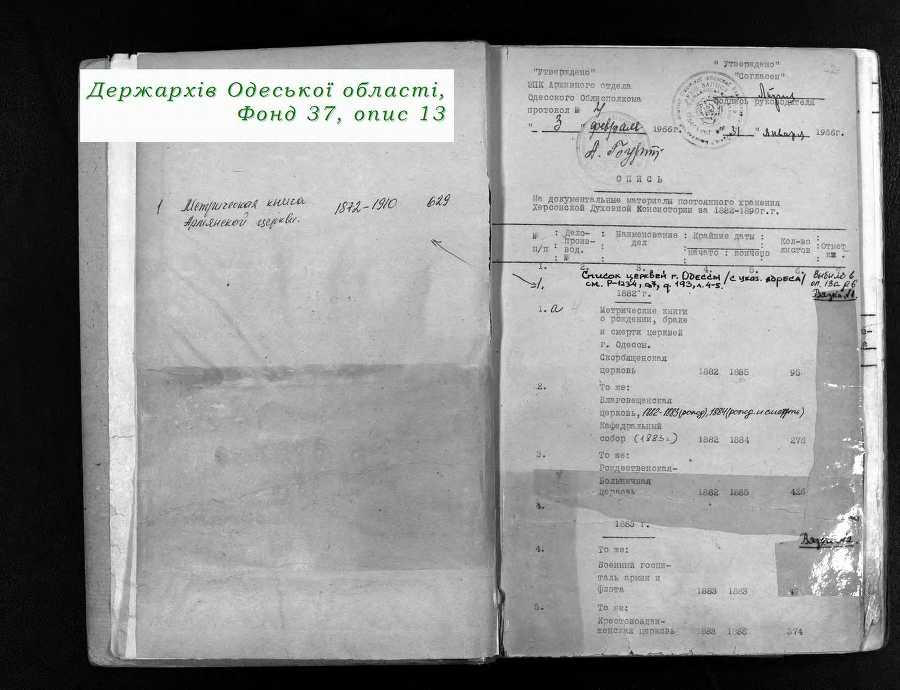 Держархів Одеської області,
Фонд 37, опис 13
1 Метрическая книга 1872-1910 629
Армянской церкви.
"Утверждено"
ЭПК Архивного отдела
Одесского Облисполкома
протокол № 4
"3" февраля 1966г.
"Утверждено"
"Согласен"
подпись руководителя
"31" января 1966г.
ОПИСЬ
На документальные материалы постоянного хранения
Херсонской Духовной Консистории за 1882-1890г.г.
№ п/п : Дело-произв-вод. № : Наименование дел : Крайние даты : начато : кончено : Кол-во листов : Отмет
1. 2. 3. 4. 5. 6.
Список церквей г. Одессы /с указ. адреса/
см. Р-1234, оп7, д. 193, л. 4-5.
Выбыло в
оп. 13а д. 6
1882 г.
1.а Метрические книги
о рождении, браке
и смерти церквей
г. Одессы.
Скорбященская
церковь 1882 1885 95
2. То же:
Благовещенская
церковь, 1882-1883 (рожд), 1884 (рожд. и смерть)
Кафедральный
собор (1883г.) 1882 1884 278
3. То же:
Рождественская-
Больничная
церковь 1882 1885 426
4.
1883 г.
4. То же:
Военный госпи-
таль армии и
флота 1883 1883
5. То же:
Крестовоздви-
женская церковь 1883 1888 374